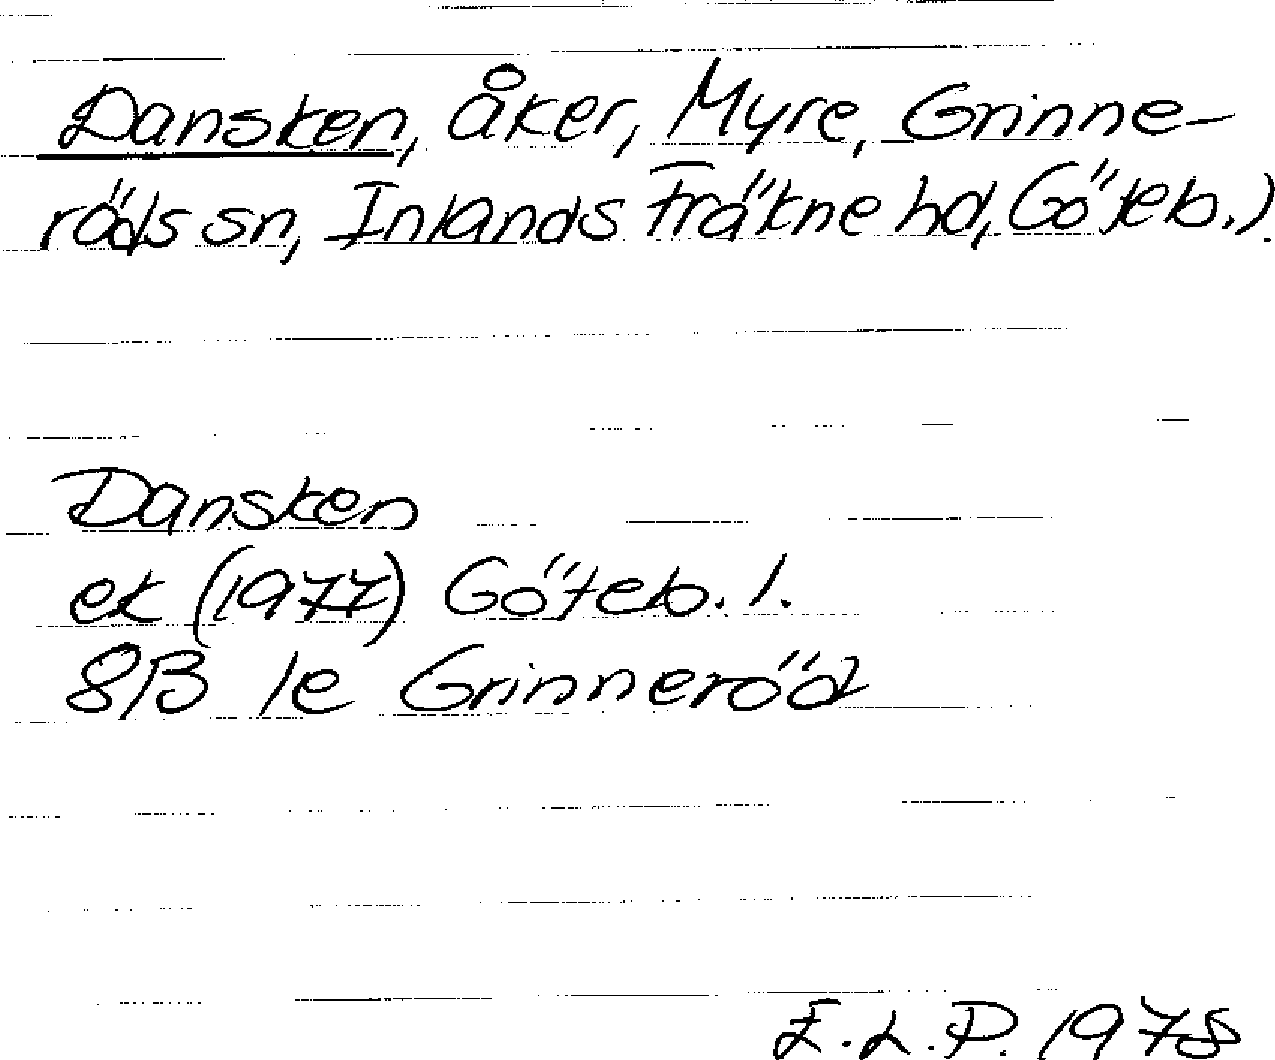 Dansken, åker, Myre, Grinne-
röds sn, Inlands Fräkne hd, Göteb. l.
Dansken
ek (1977) Göteb. l.
8B 1e Grinneröd
E.L.P. 1978